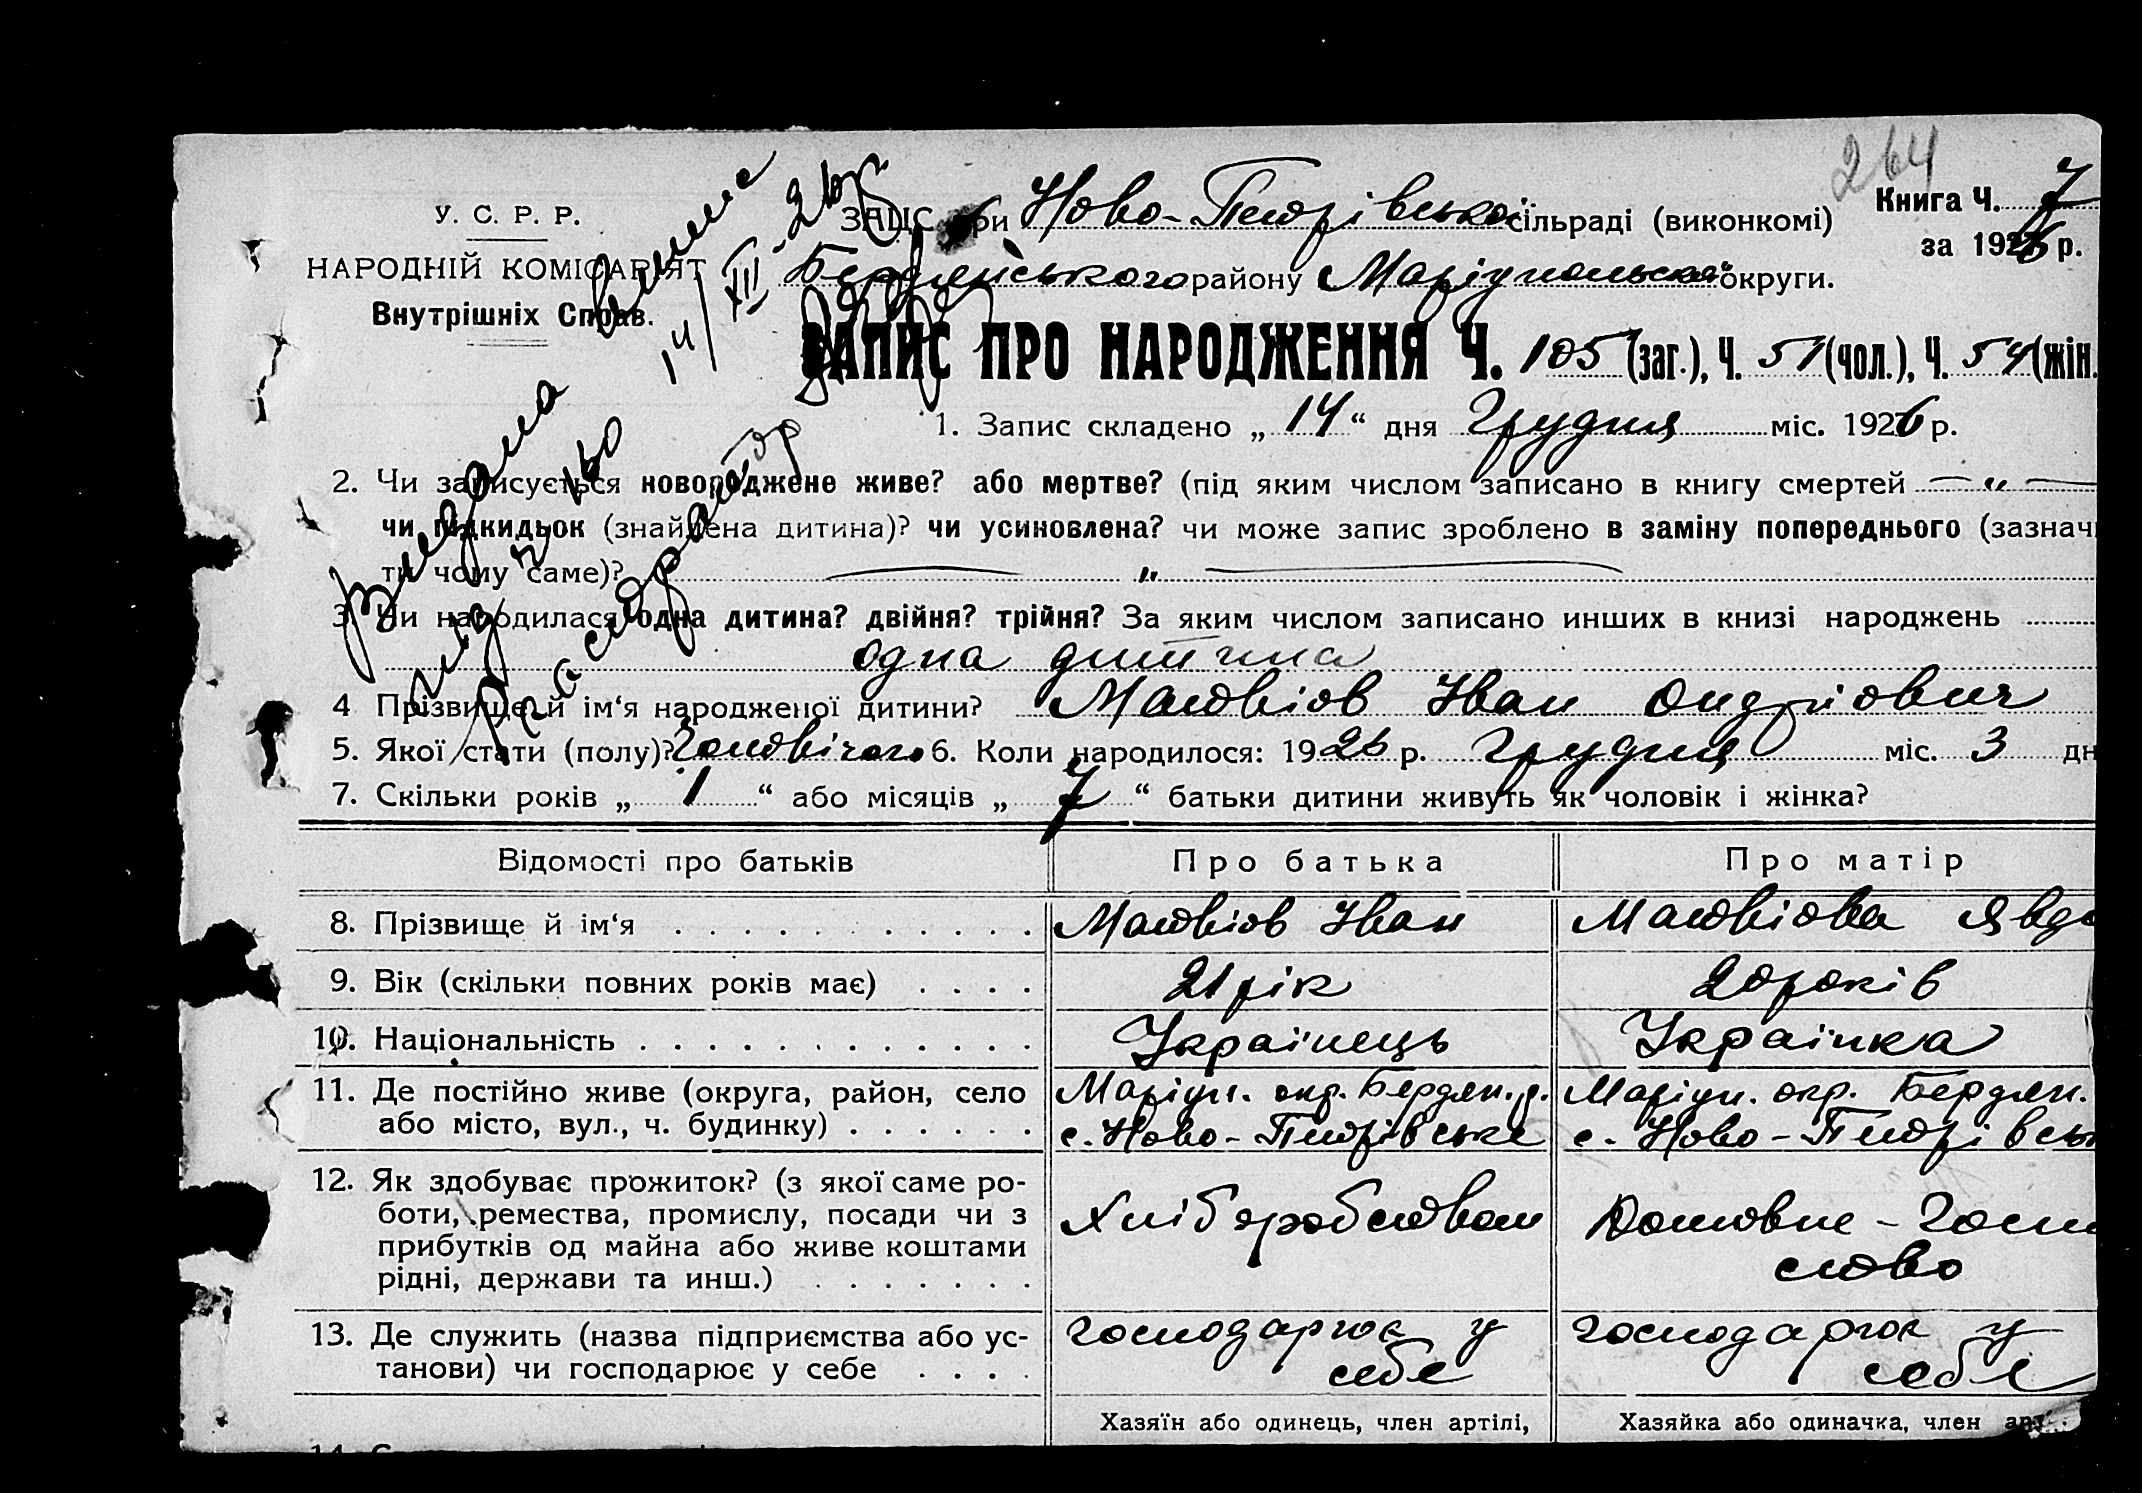 264
У. С. Р. Р.
НАРОДНІЙ КОМІСАРІЯТ
Внутрішніх Справ.
ЗАЦС при Ново-Петрівської сільраді (виконкомі)
Книга Ч. 7
за 1926 р.
Бердянського району Маріупольської округи.
Видана випис
14/XII-26 р.
ЗАПИС ПРО НАРОДЖЕННЯ Ч. 105 (заг.), Ч. 51 (чол.), Ч. 54 (жін.
1. Запис складено „ 14 “ дня Грудня міс. 1926 р.
2. Чи записується новороджене живе? або мертве? (під яким числом записано в книгу смертей — „ —
чи підкидьок (знайдена дитина)? чи усиновлена? чи може запис зроблено в заміну попереднього (зазначи
ти чому саме)? — „ —
3. Чи народилася одна дитина? двійня? трійня? За яким числом записано инших в книзі народжень
одна дитина
4 Прізвище й ім‘я народженої дитини? Матвіов Іван
5. Якої стати (полу)? Чоловічого 6. Коли народилося: 1926 р. Грудня міс. 3 дн
7. Скільки років „ 1 “ або місяців „ 7 “ батьки дитини живуть як чоловік і жінка?
Відомості про батьків Про батька Про матір
8. Прізвище й ім‘я Матвіов Іван Матвіова Явдо
9. Вік (скільки повних років має) 21 рік 20 років
10. Національність Українець Українка
11. Де постійно живе (округа, район, село
або місто, вул., ч. будинку)
Маріуп. окр. Бердян. р.
с. Ново-Петрівське
Маріуп. окр. Бердян.
с. Ново-Петрівськ
12. Як здобуває прожиток? (з якої саме ро-
боти, ремества, промислу, посади чи з
прибутків од майна або живе коштами
рідні, держави та инш.)
Хліборобством
Домовне-Госп
ство
13. Де служить (назва підприємства або ус-
танови) чи господарює у себе
господарює у
себе
господарює у
себе
Хазяїн або одинець, член артілі,
Хазяйка або одиначка, член арт